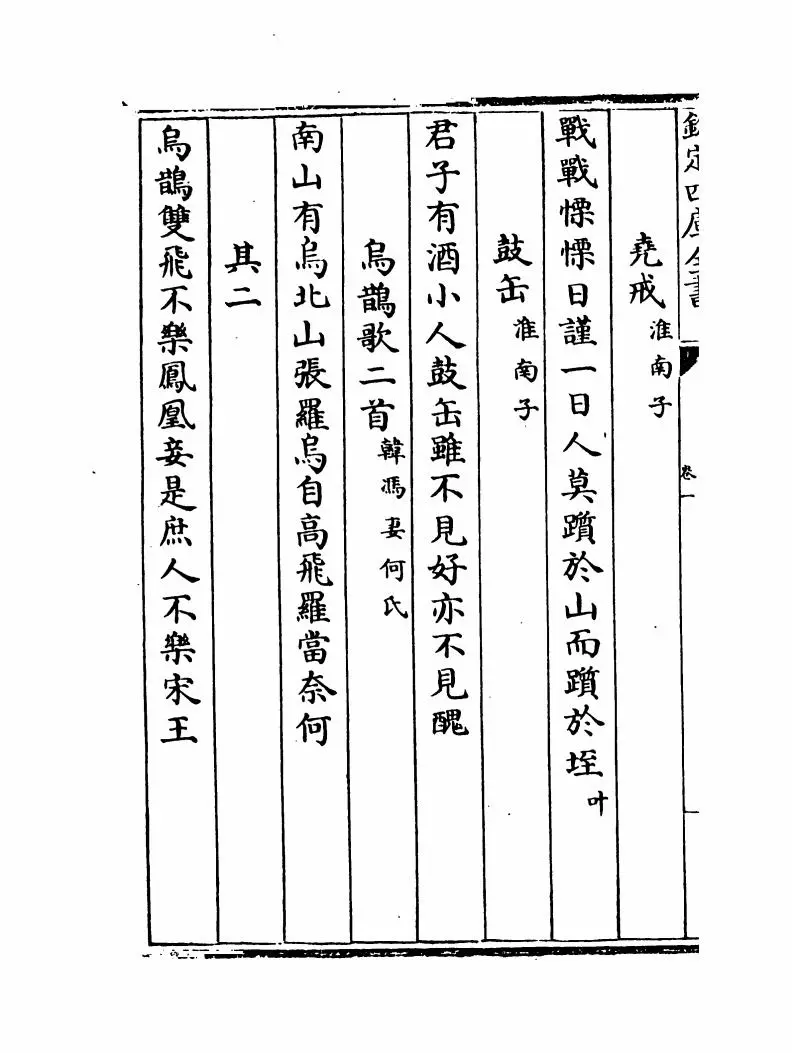 欽定四庫全書
卷一
堯戒淮南子
戰戰慄慄日謹一日人莫躓於山而躓於垤叶
鼓缶淮南子
君子有酒小人鼓缶雖不見好亦不見醜
烏鵲歌二首韓馮妻何氏
南山有烏北山張羅烏自高飛羅當奈何
其二
烏鵲雙飛不樂鳳凰妾是庶人不樂宋王